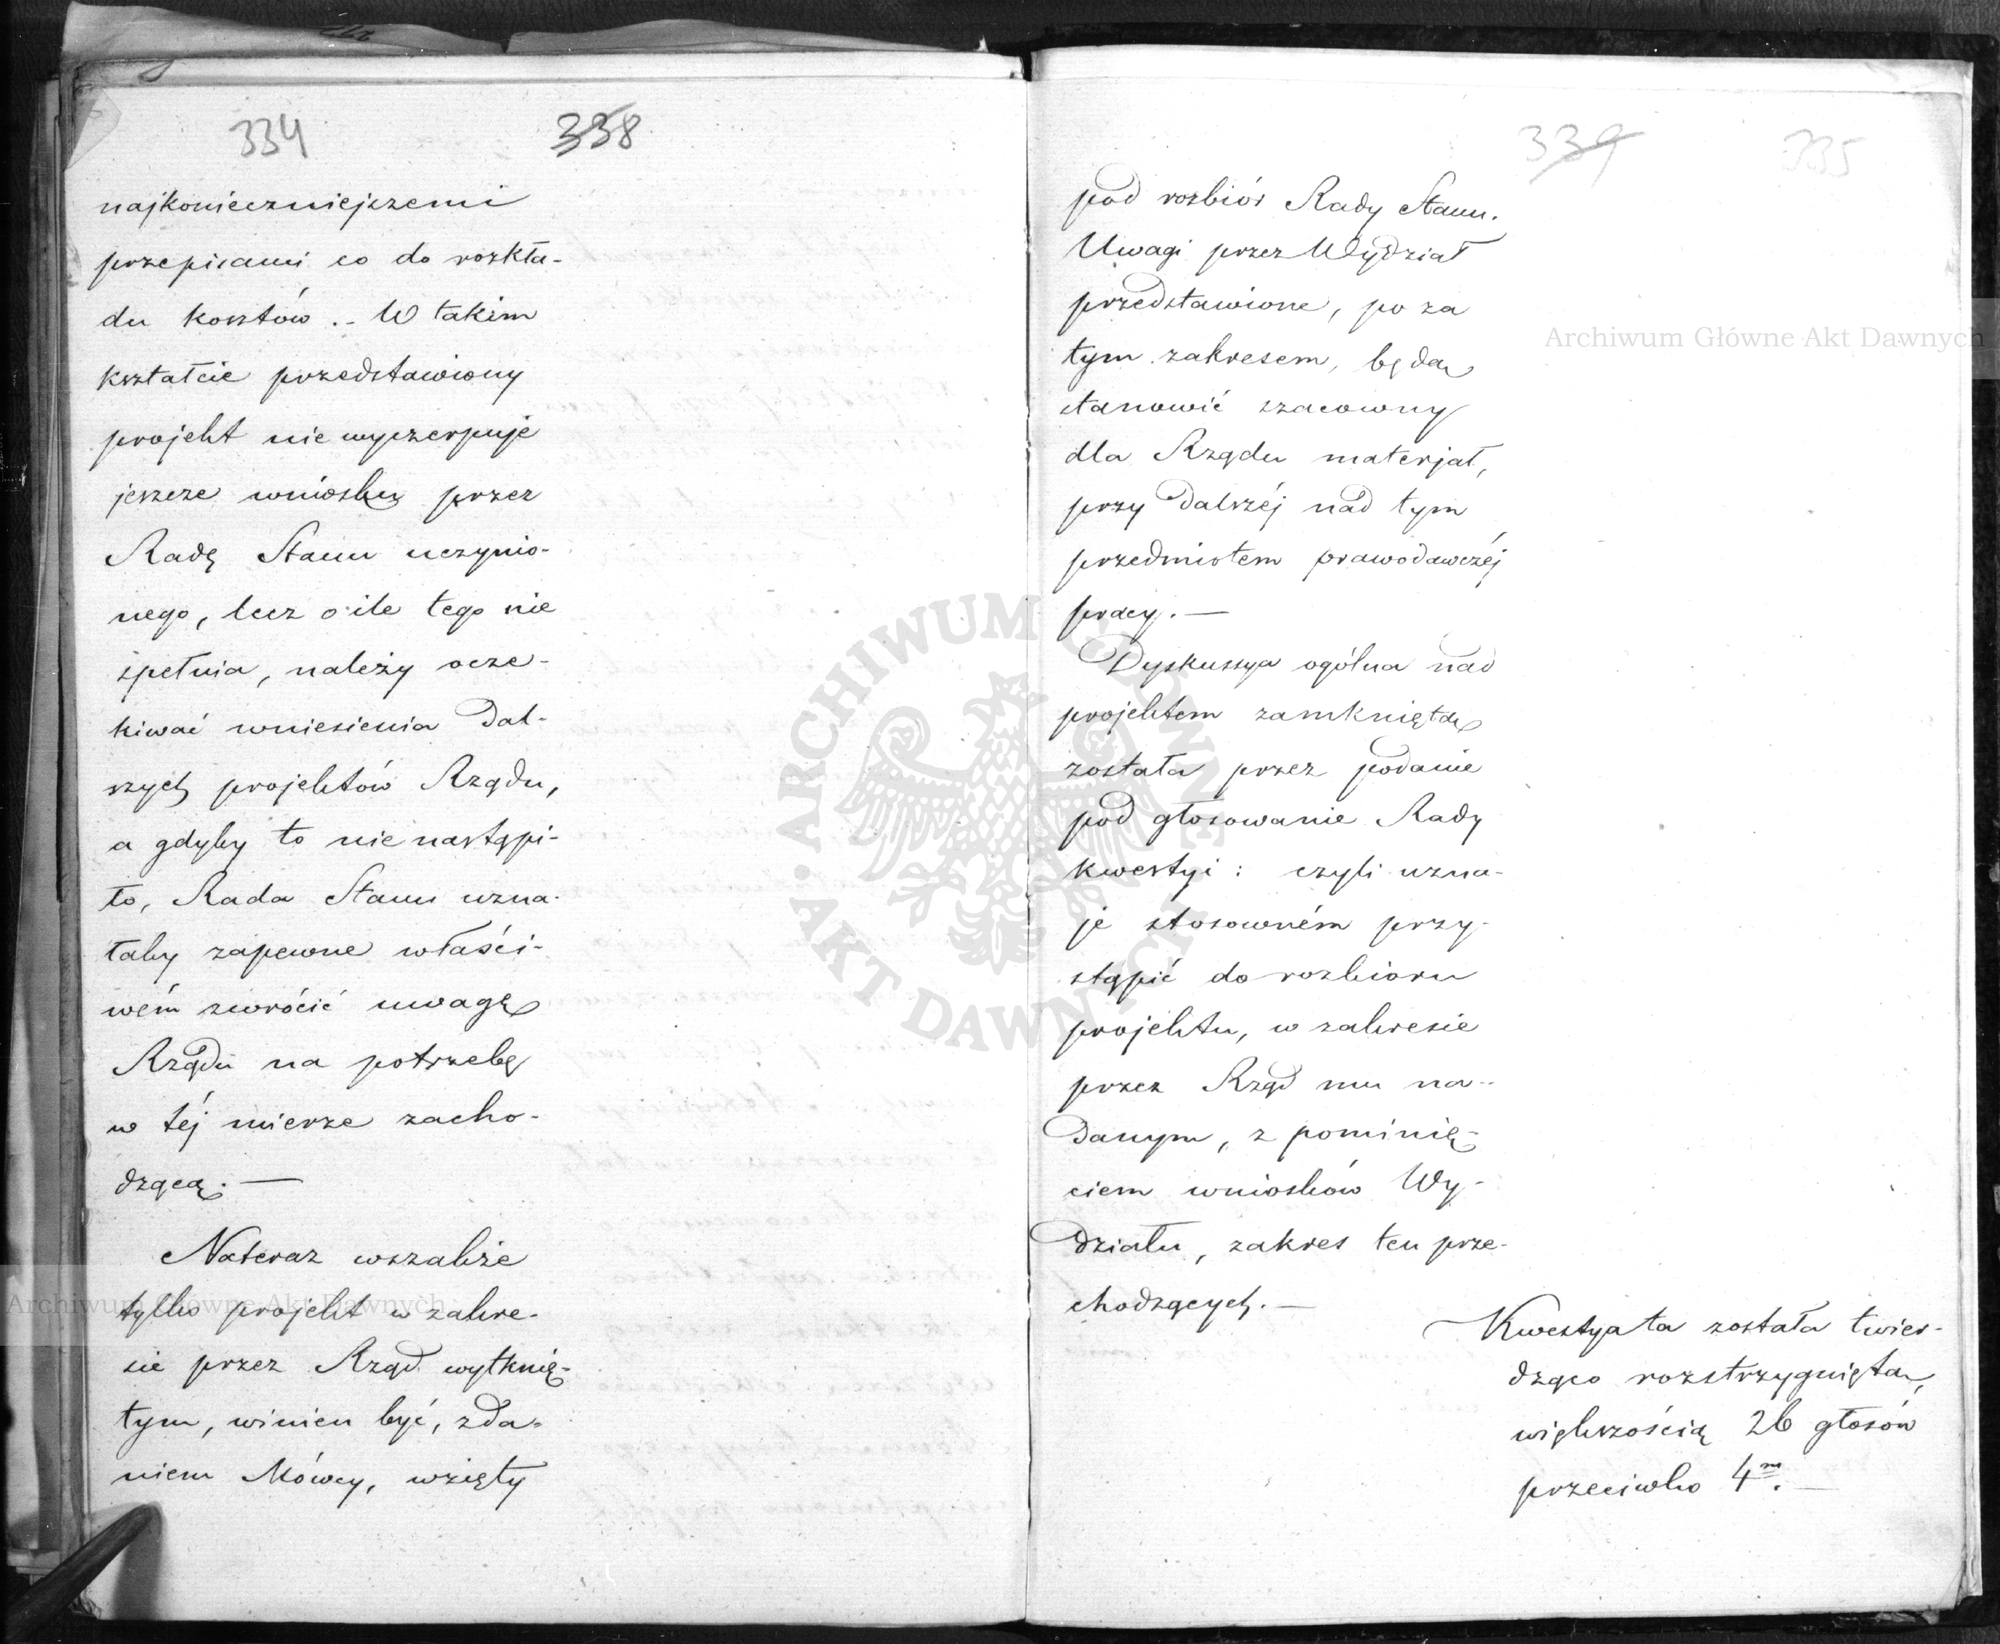 334 338
najkonieczniejszemi
przepisami co do rozkła-
du kosztów .- W takim
kształcie przedstawiony
projekt nie wyczerpuje
jeszcze wniosku przez
Radę Stanu uczynio-
nego, lecz o ile tego nie
spełnia, należy ocze-
kiwać wniesienia dal-
szych projektów Rządu,
a gdyby to nie nastąpi-
ło, Rada Stanu uzna-
łaby zapewne właści-
wém zwrócić uwagę
Rządu na potrzebę
w téj mierze zacho-
dzącą. —
Nateraz wszakże
tylko projekt w zakre-
sie przez Rząd wytknię-
tym, winien być, zda-
niem Mówcy, wzięty
339 335
pod rozbiór Rady Stanu.
Uwagi przez Wydział
przedstawione, po za
tym zakresem, będą
stanowić szacowny
dla Rządu materjał,
przy dalszéj nad tym
przedmiotem prawodawczéj
pracy. —
Dyskussya ogólna nad
projektem zamkniętą
została przez podanie
pod głosowanie Rady
kwestyi : czyli uzna-
je stosowném przy-
stąpić do rozbioru
projektu, w zakresie
przez Rząd mu na-
danym, z pominię-
ciem wniosków Wy-
działu, zakres ten prze-
chodzących. —
Kwestya ta została twier-
dząco rozstrzygniętą,
większością 26 głosów
przeciwko 4m. —
Archiwum Główne Akt Dawnych
Archiwum Główne Akt Dawnych
ARCHIWUM GŁÓWNE AKT DAWNYCH